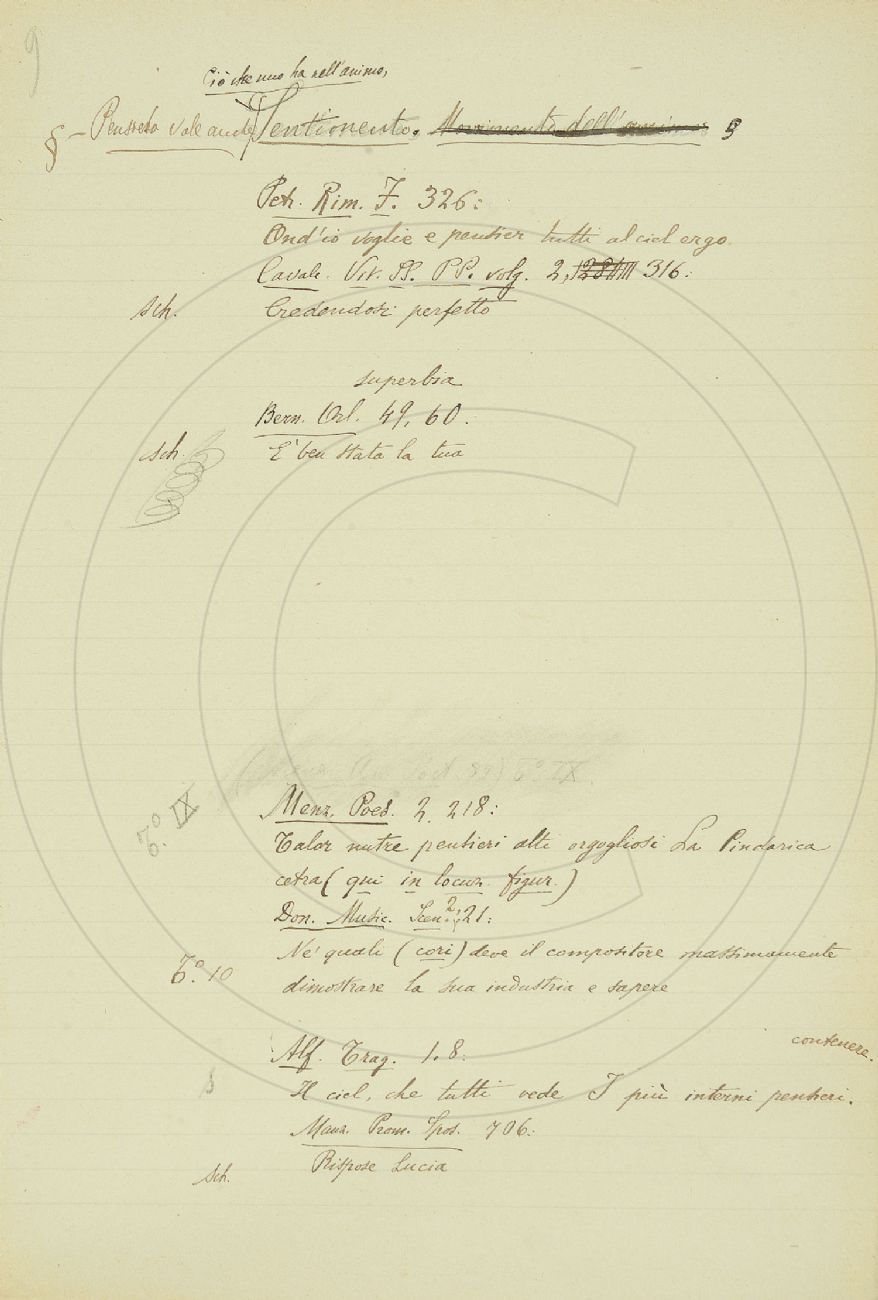 9
Ciò che uno ha nell'animo,
§ – Pensiero vale anche Sentimento. Movimento dell'animo 9
Petr. Rim. F. 326:
Ond'io voglie e pensier tutti al ciel ergo.
Cavalc. Vit. SS. PP. volg. 2, 316:
sch. Credendosi perfetto
superbia
Bern. Orl. 49, 60.
sch. E' ben stata la tua
Menz. Poes. 2. 218:
T.º IX Talor nutre pensieri alti orgogliosi La Pindarica
cetra (qui in locuz. figur.)
Don. Music. Scen. 2, 21:
Ne' quali (cori) deve il compositore massimamente
T.º 10 dimostrare la sua industria e sapere
contenere.
Alf. Trag. 1. 8:
Il ciel, che tutti vede I più interni pensieri.
Manz. Prom. Spos. 706:
Rispose Lucia
sch.